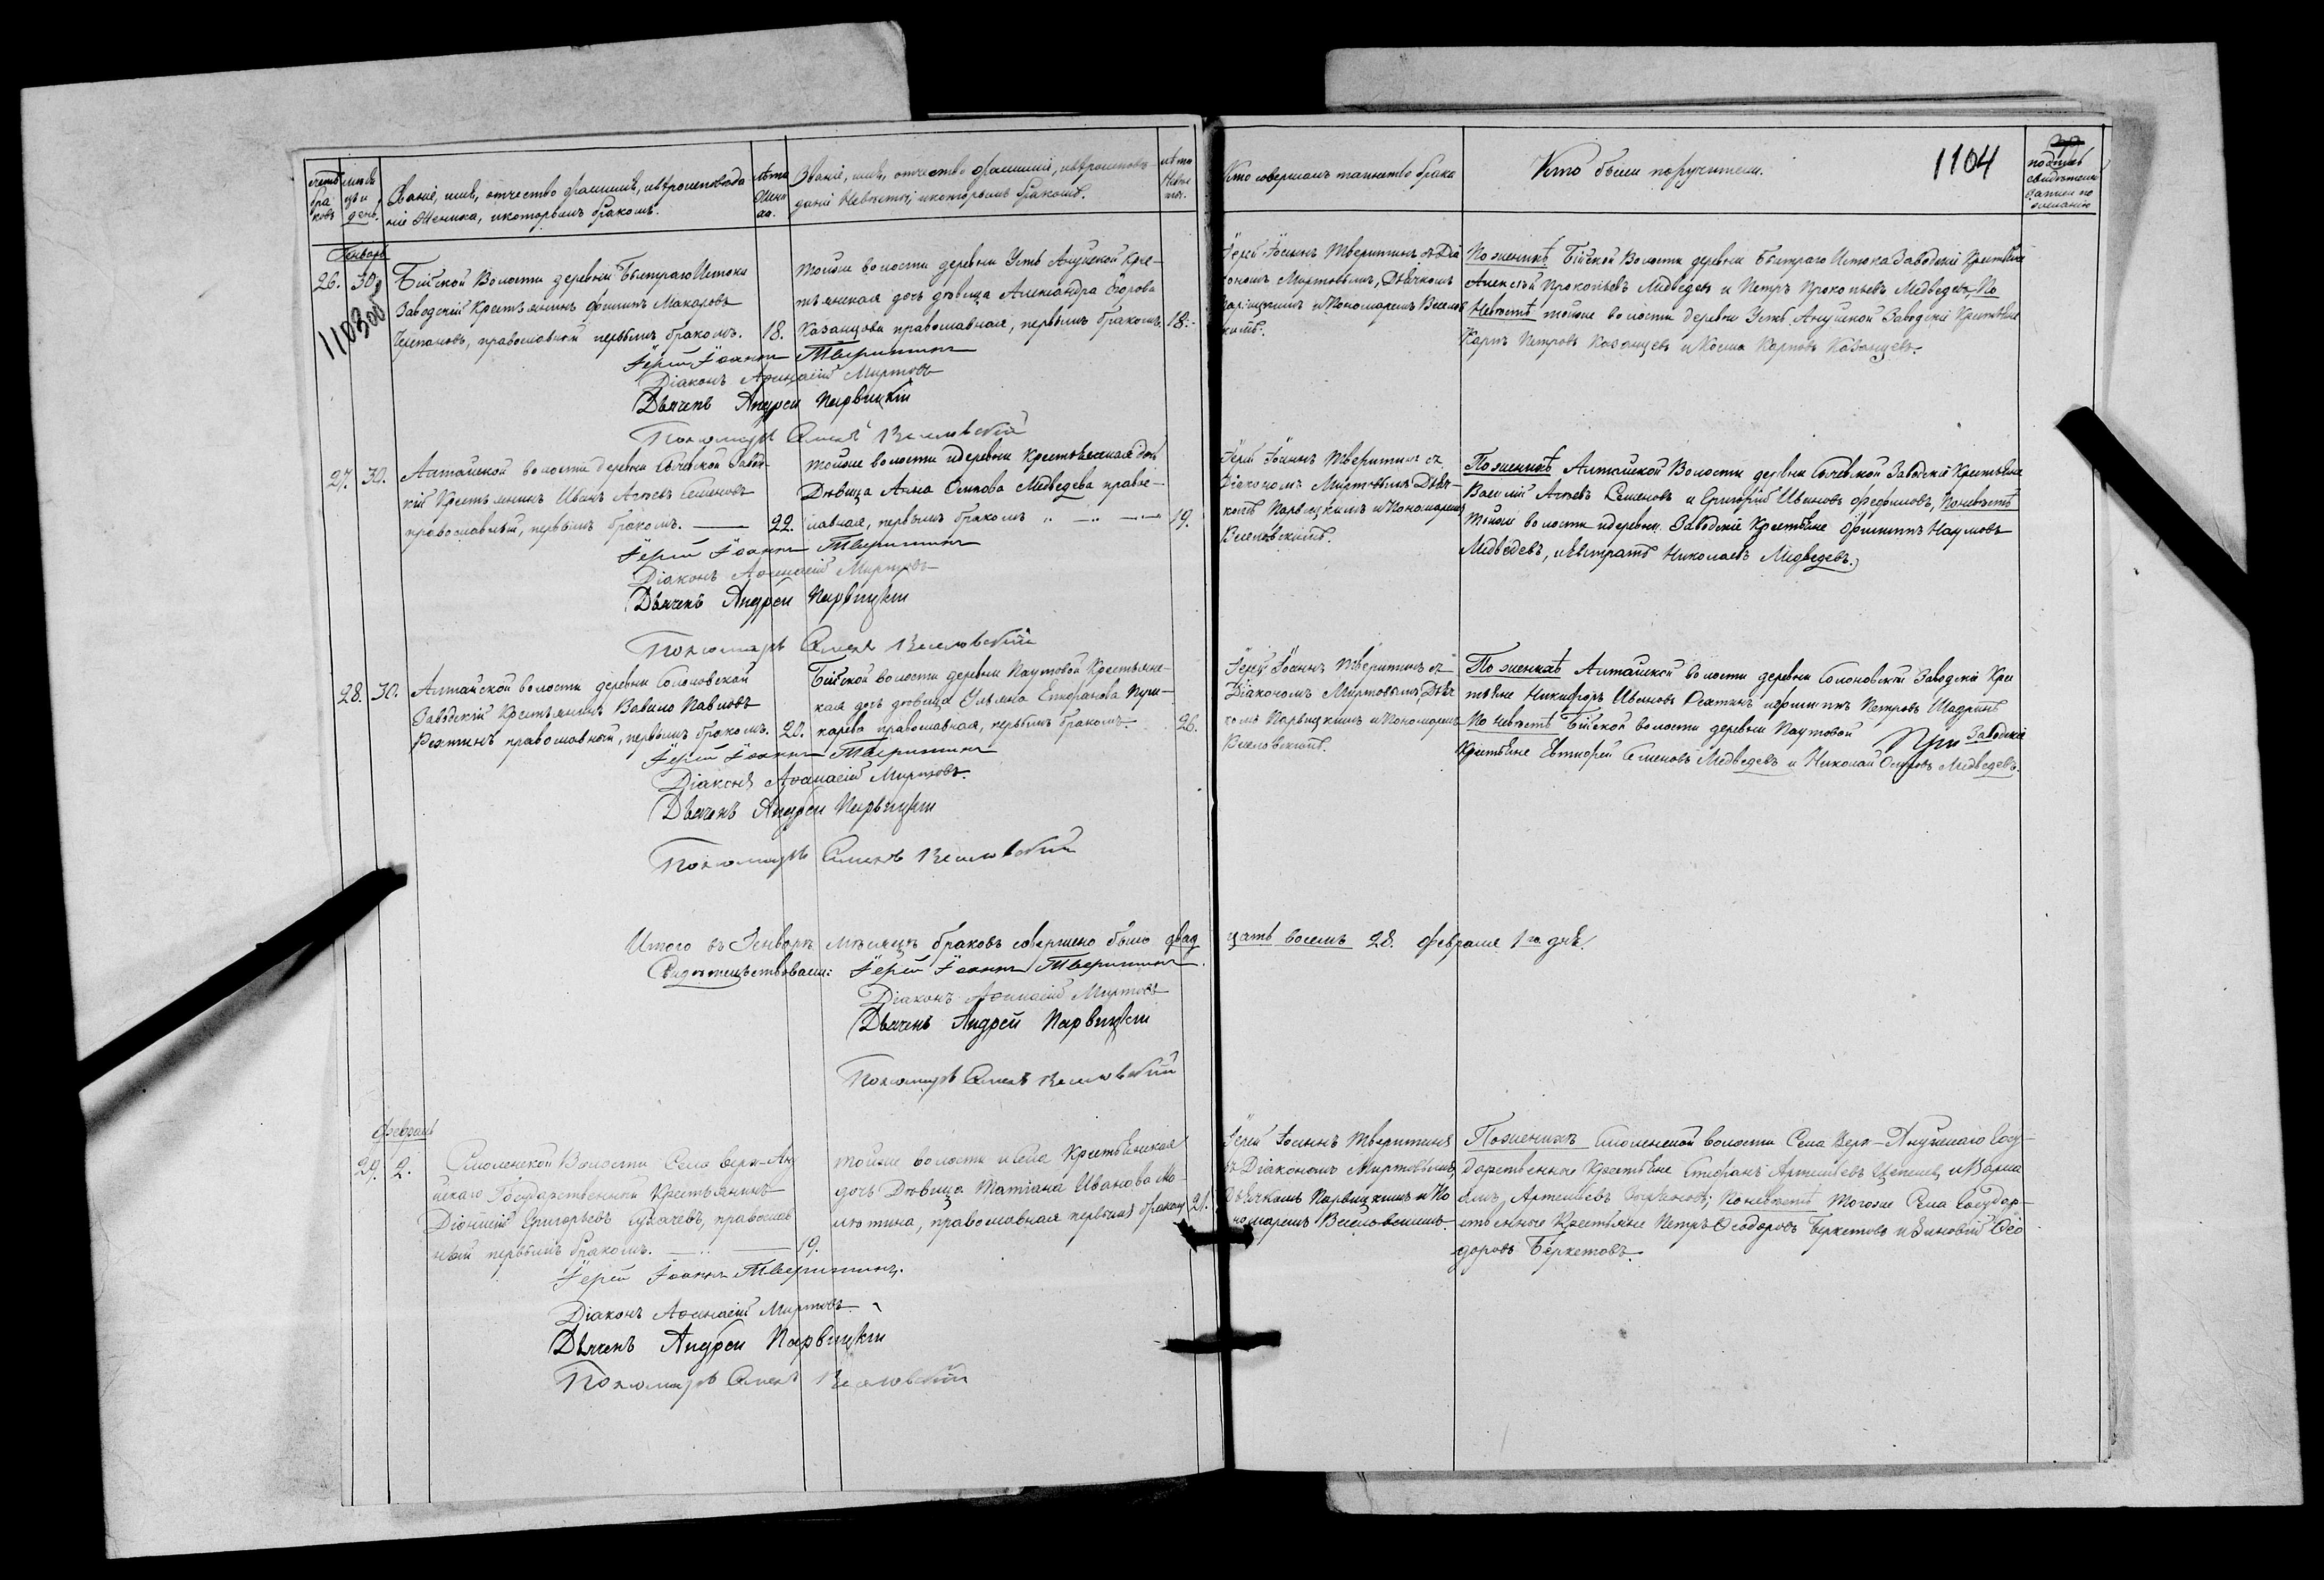 счетъ бра ковъ
месяцъ и день.
Званіе, имя, отчество фамилія, и вѣроисповѣда
ніе Жениха, и которымъ бракомъ.
лѣта Жени ха.
Званіе, имя, отчество фамилія, и вѣроисповѣ-
даніе Невѣсты, и которымъ бракомъ.
лѣта Невѣ сты.
Кто совершалъ таинство брака
Кто были поручители.
1104
подпись
свидѣтелей
записи по
желанію
Январь
26. 30.
110300
Бійской Волости деревни Быстраго Истока
Заводскій Крестьянинъ Филипъ Макаровъ
православный первымъ бракомъ. 18.
тойже волости деревни Усть Ануйской Кре-
стьянская дочь дѣвица Александра
Казанцова православная, первымъ бракомъ. 18.
Іерей Іоаннъ Тверитинъ съ Діа
кономъ Миртовымъ, Дьячкомъ
Парвицкимъ и Пономаремъ Веселов
скимъ.
По женихѣ Бійской Волости деревни Быстраго Истока Заводскіе Крестьяне
Алексѣй Прокопьевъ Медведевъ и Петръ Прокопьевъ Медведевъ, По
Невѣстѣ тойже волости деревни Усть Ануйской Заводскіе Крестьяне
Карпъ Петровъ Казанцевъ и Косма Карповъ Казанцевъ.
Іерей Іоаннъ Тверитинъ
Діаконъ Афанасій Миртовъ
Дьячекъ Андрей Парвицкій
Пономарь Веселовскій
27. 30.
Алтайской волости деревни Сычевской Завод-
скій Крестьянинъ Иванъ Агѣевъ Семеновъ
православный, первымъ бракомъ. 22.
тойже волости и деревни Крестьянская дочь
Дѣвица Анна Осипова Медведева право-
славная, первымъ бракомъ 19.
Іерей Іоаннъ Тверитинъ съ
Діакономъ Миртовымъ Дьяч-
комъ Парвицкимъ и Пономаремъ
Веселовскимъ.
По женихѣ Алтайской Волости деревни Сычевской Заводскіе Крестьяне
Василій Агѣевъ Семеновъ и Григорій Ивановъ Феофиловъ, По невѣстѣ
Тойже волости и деревни Заводскіе Крестьяне Филиппъ Наумовъ
Медведевъ, и Евстратъ Николаевъ Медведевъ.
Іерей Іоаннъ Тверитинъ
Діаконъ Афанасій Миртовъ
Дьячекъ Андрей Парвицкій
Пономарь Веселовскій
28. 30.
Алтайской волости деревни Солоновской
Заводскій Крестьянинъ Вавило Павловъ
Рехтинъ православный, первымъ бракомъ. 20.
Бійской волости деревни Паутовой Крестьянс-
кая дочь дѣвица Ульяна Стефанова Пуш-
карева православная, первымъ бракомъ. 26.
Іерей Іоаннъ Тверитинъ съ
Діакономъ Миртовымъ, Дьяч
комъ Парвицкимъ и Пономаремъ
Веселовскимъ.
По женихѣ Алтайской волости деревни Солоновской Заводскіе Кре
стьяне Никифоръ Ивановъ Рехтинъ и Филиппъ Петровъ Шадринъ
По невѣстѣ Бійской волости деревни Паутовой Заводскіе
Крестьяне Евтифей Семеновъ Медведевъ и Николай Осиповъ Медведевъ.
Іерей Іоаннъ Тверитинъ
Діаконъ Афанасій Миртовъ.
Дьячекъ Андрей Парвицкій
Пономарь Веселовскій
Итого въ Генварѣ мѣсяцѣ браковъ совершено было двад
цать восемь 28. Февраля 1го дня.
Свидѣтельствовали: Іерей Іоаннъ Тверитинъ.
Діаконъ Афанасій Миртовъ
Дьячекъ Андрей Парвицкій
Пономарь Веселовскій
Февраль
29. 2.
Смоленской Волости Села Верх-Ану
йскаго Государственный Крестьянинъ
Діонисій Григорьевъ православ
ный первымъ бракомъ. 19.
тойже волости и Села Крестьянская
дочь Дѣвица Татіана Иванова
православная первымъ бракомъ 21.
Іерей Іоаннъ Тверитинъ
съ Діакономъ Миртовымъ,
Дьячкомъ Парвицкимъ и По
номаремъ Веселовскимъ.
По женихѣ Смоленской волости Села Верх-Ануйскаго Госу-
дарственные Крестьяне Стефанъ и Варла
амъ По невѣстѣ Тогоже Села Государ-
ственные Крестьяне Петръ Феодоровъ Беркетовъ и Зиновій Фео
доровъ Беркетовъ.
Іерей Іоаннъ Тверитинъ.
Діаконъ Афанасій Миртовъ.
Дьячекъ Андрей Парвицкій
Пономарь Веселовскій